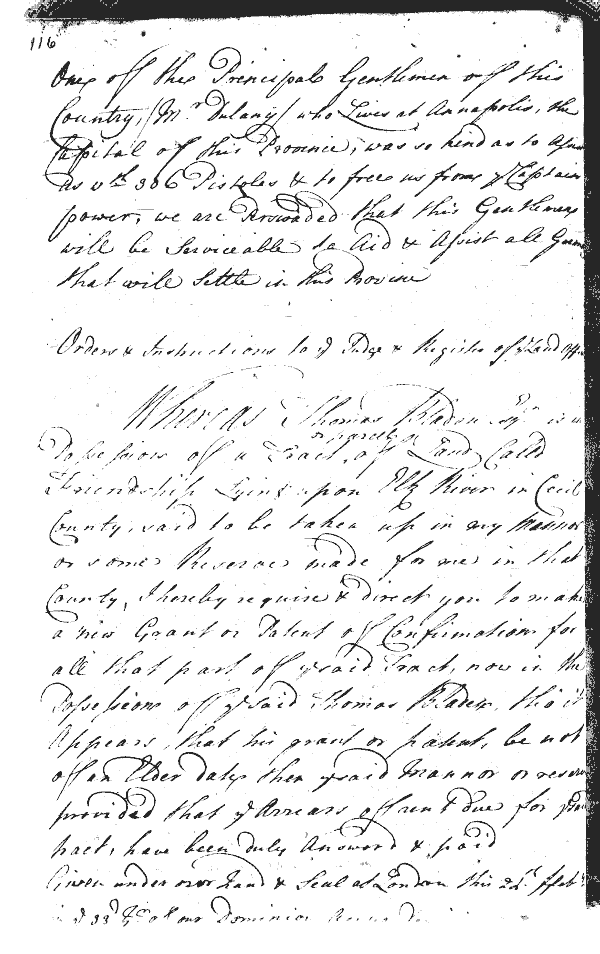 116
One of the Principal Gentlemen of this
Country, (Mr Dulany) who Lives at Annapolis, the
Capital of this Province, was so kind as to Assist
us wth 306 Pistoles & to free us from ye Captains
power, we are Perswaded that this Gentleman
will be Serviceable to Aid & Assist all
that will Settle in this Province
Orders & Instructions to ye Judge & Register of ye Land Office
Whereas Thomas Bladen Esqr is in
or parcell
Possession of a Tract of Land Calld
Friendship Lying upon Elk River in Cecil
County, said to be taken up in my Mannor
or some Reserve made for me in that
County, I hereby require & direct you to make
a new Grant or Patent of Confirmation for
all that part of ye said Tract, now in the
Possession of ye said Thomas Bladen, tho it
Appears, that his grant or patent, be not
of an Elder date then ye said Mannor or reserve
provided that ye Arrears of rent due for
tract, have been duly Answerd & paid
Given under our hand & Seal at London this
ye 33d of our Dominion